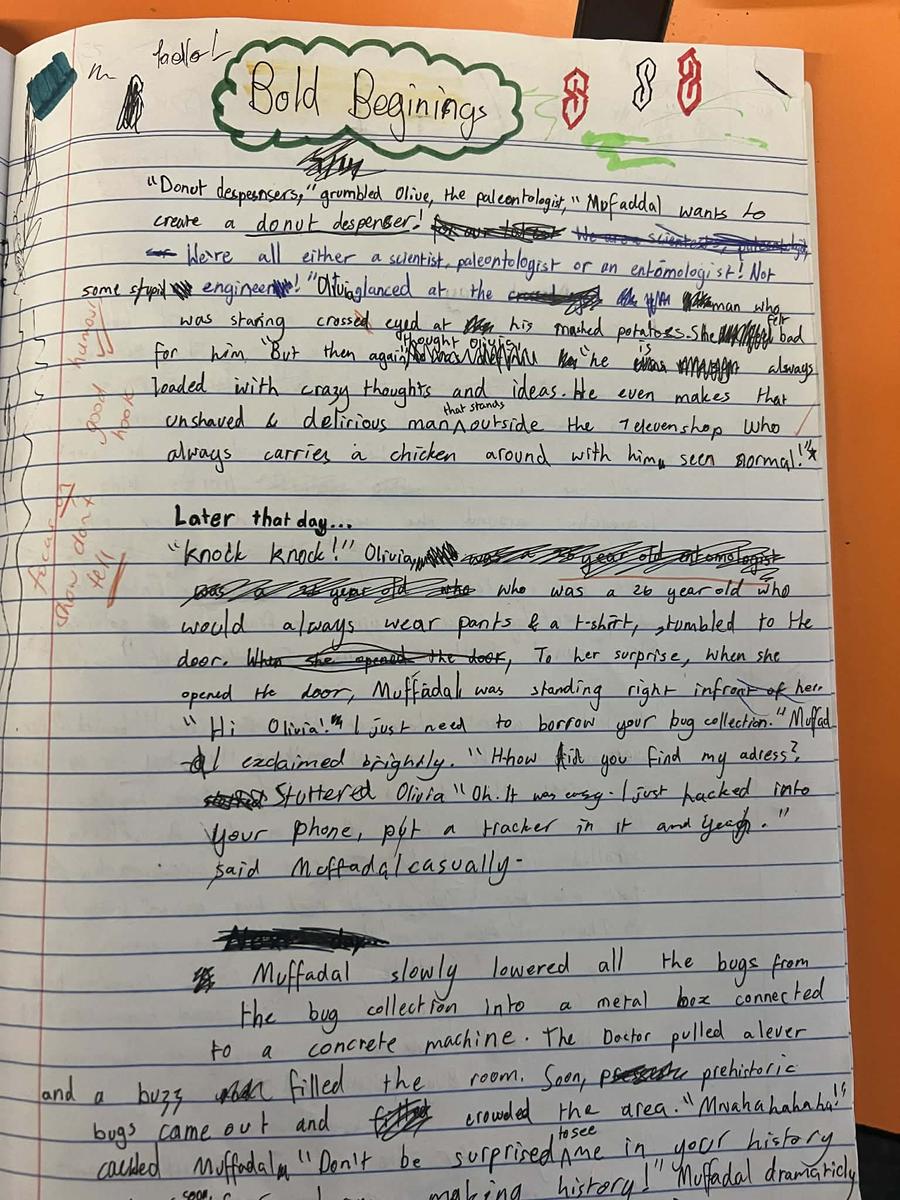 hello!
Bold Beginings
"Donut despensers," grumbled Olive, the paleontologist, "Mufaddal wants to
create a donut despenser!
We're all either a scientist, paleontologist or an entomologist! Not
some stupid engineer! "Olivia glanced at the man who
was staring crossed eyed at his mashed potatoes. She felt bad
for him "But then again, thought Olivia "he is always
loaded with crazy thoughts and ideas. He even makes that
unshaved & delirious man that stands outside the 7eleven shop who
always carries a chicken around with him, seen normal!"
good humour
good hook
Later that day...
"Knock knock!" Olivia
who was a 26 year old who
would always wear pants & a t-shirt, stumbled to the
door. To her surprise, when she
opened the door, Muffadal was standing right infront of her.
"Hi Olivia! I just need to borrow your bug collection." Muffad
-al exclaimed brightly. "H-how did you find my adress?
Stuttered Olivia "Oh. It was easy. I just hacked into
your phone, put a tracker in it and yeah."
said Muffadal casually.
focus on
show don't
tell
Muffadal slowly lowered all the bugs from
the bug collection into a metal box connected
to a concrete machine. The Doctor pulled a lever
and a buzz filled the room. Soon, prehistoric
bugs came out and crowded the area. "Mnahahahaha!"
cackled Muffadal "Don't be surprised to see me in your history
soon, making history!" Muffadal dramaticly